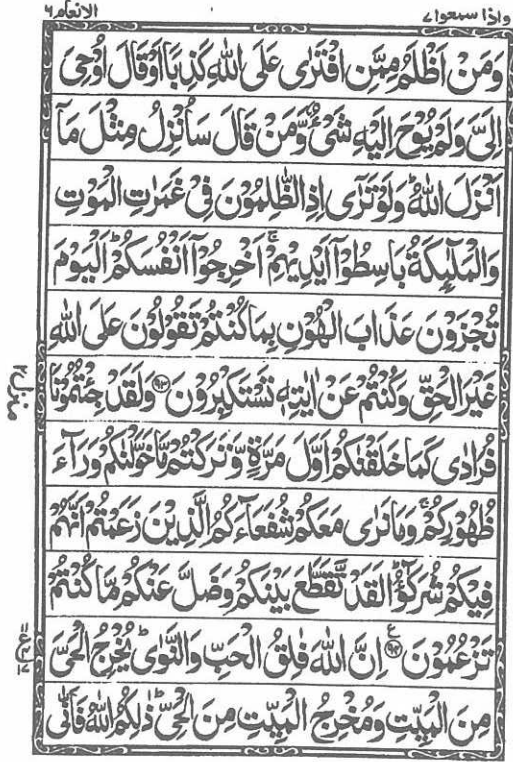 واذا سمعوا ٧
الانعام ٦
وَمَنْ اَظْلَمُ مِمَّنِ افْتَرٰى عَلَى اللّٰهِ كَذِبًا اَوْ قَالَ اُوْحِىَ
اِلَىَّ وَلَمْ يُوْحَ اِلَيْهِ شَىْءٌ وَّمَنْ قَالَ سَاُنْزِلُ مِثْلَ مَاۤ
اَنْزَلَ اللّٰهُ ؕ وَلَوْ تَرٰۤى اِذِ الظّٰلِمُوْنَ فِىْ غَمَرٰتِ الْمَوْتِ
وَالْمَلٰٓئِكَةُ بَاسِطُوْۤا اَيْدِيْهِمْ ۚ اَخْرِجُوْۤا اَنْفُسَكُمْ ؕ اَلْيَوْمَ
تُجْزَوْنَ عَذَابَ الْهُوْنِ بِمَا كُنْتُمْ تَقُوْلُوْنَ عَلَى اللّٰهِ
غَيْرَ الْحَقِّ وَكُنْتُمْ عَنْ اٰيٰتِهٖ تَسْتَكْبِرُوْنَ ﴿۹۳﴾ وَلَقَدْ جِئْتُمُوْنَا
فُرَادٰى كَمَا خَلَقْنٰكُمْ اَوَّلَ مَرَّةٍ وَّتَرَكْتُمْ مَّا خَوَّلْنٰكُمْ وَرَآءَ
ظُهُوْرِكُمْ ۚ وَمَا نَرٰى مَعَكُمْ شُفَعَآءَكُمُ الَّذِيْنَ زَعَمْتُمْ اَنَّهُمْ
فِيْكُمْ شُرَكٰٓؤُا ؕ لَقَدْ تَّقَطَّعَ بَيْنَكُمْ وَضَلَّ عَنْكُمْ مَّا كُنْتُمْ
تَزْعُمُوْنَ ﴿۹۴﴾ ع اِنَّ اللّٰهَ فٰلِقُ الْحَبِّ وَالنَّوٰى ؕ يُخْرِجُ الْحَىَّ
مِنَ الْمَيِّتِ وَمُخْرِجُ الْمَيِّتِ مِنَ الْحَىِّ ؕ ذٰلِكُمُ اللّٰهُ فَاَنّٰى
منزل ٢